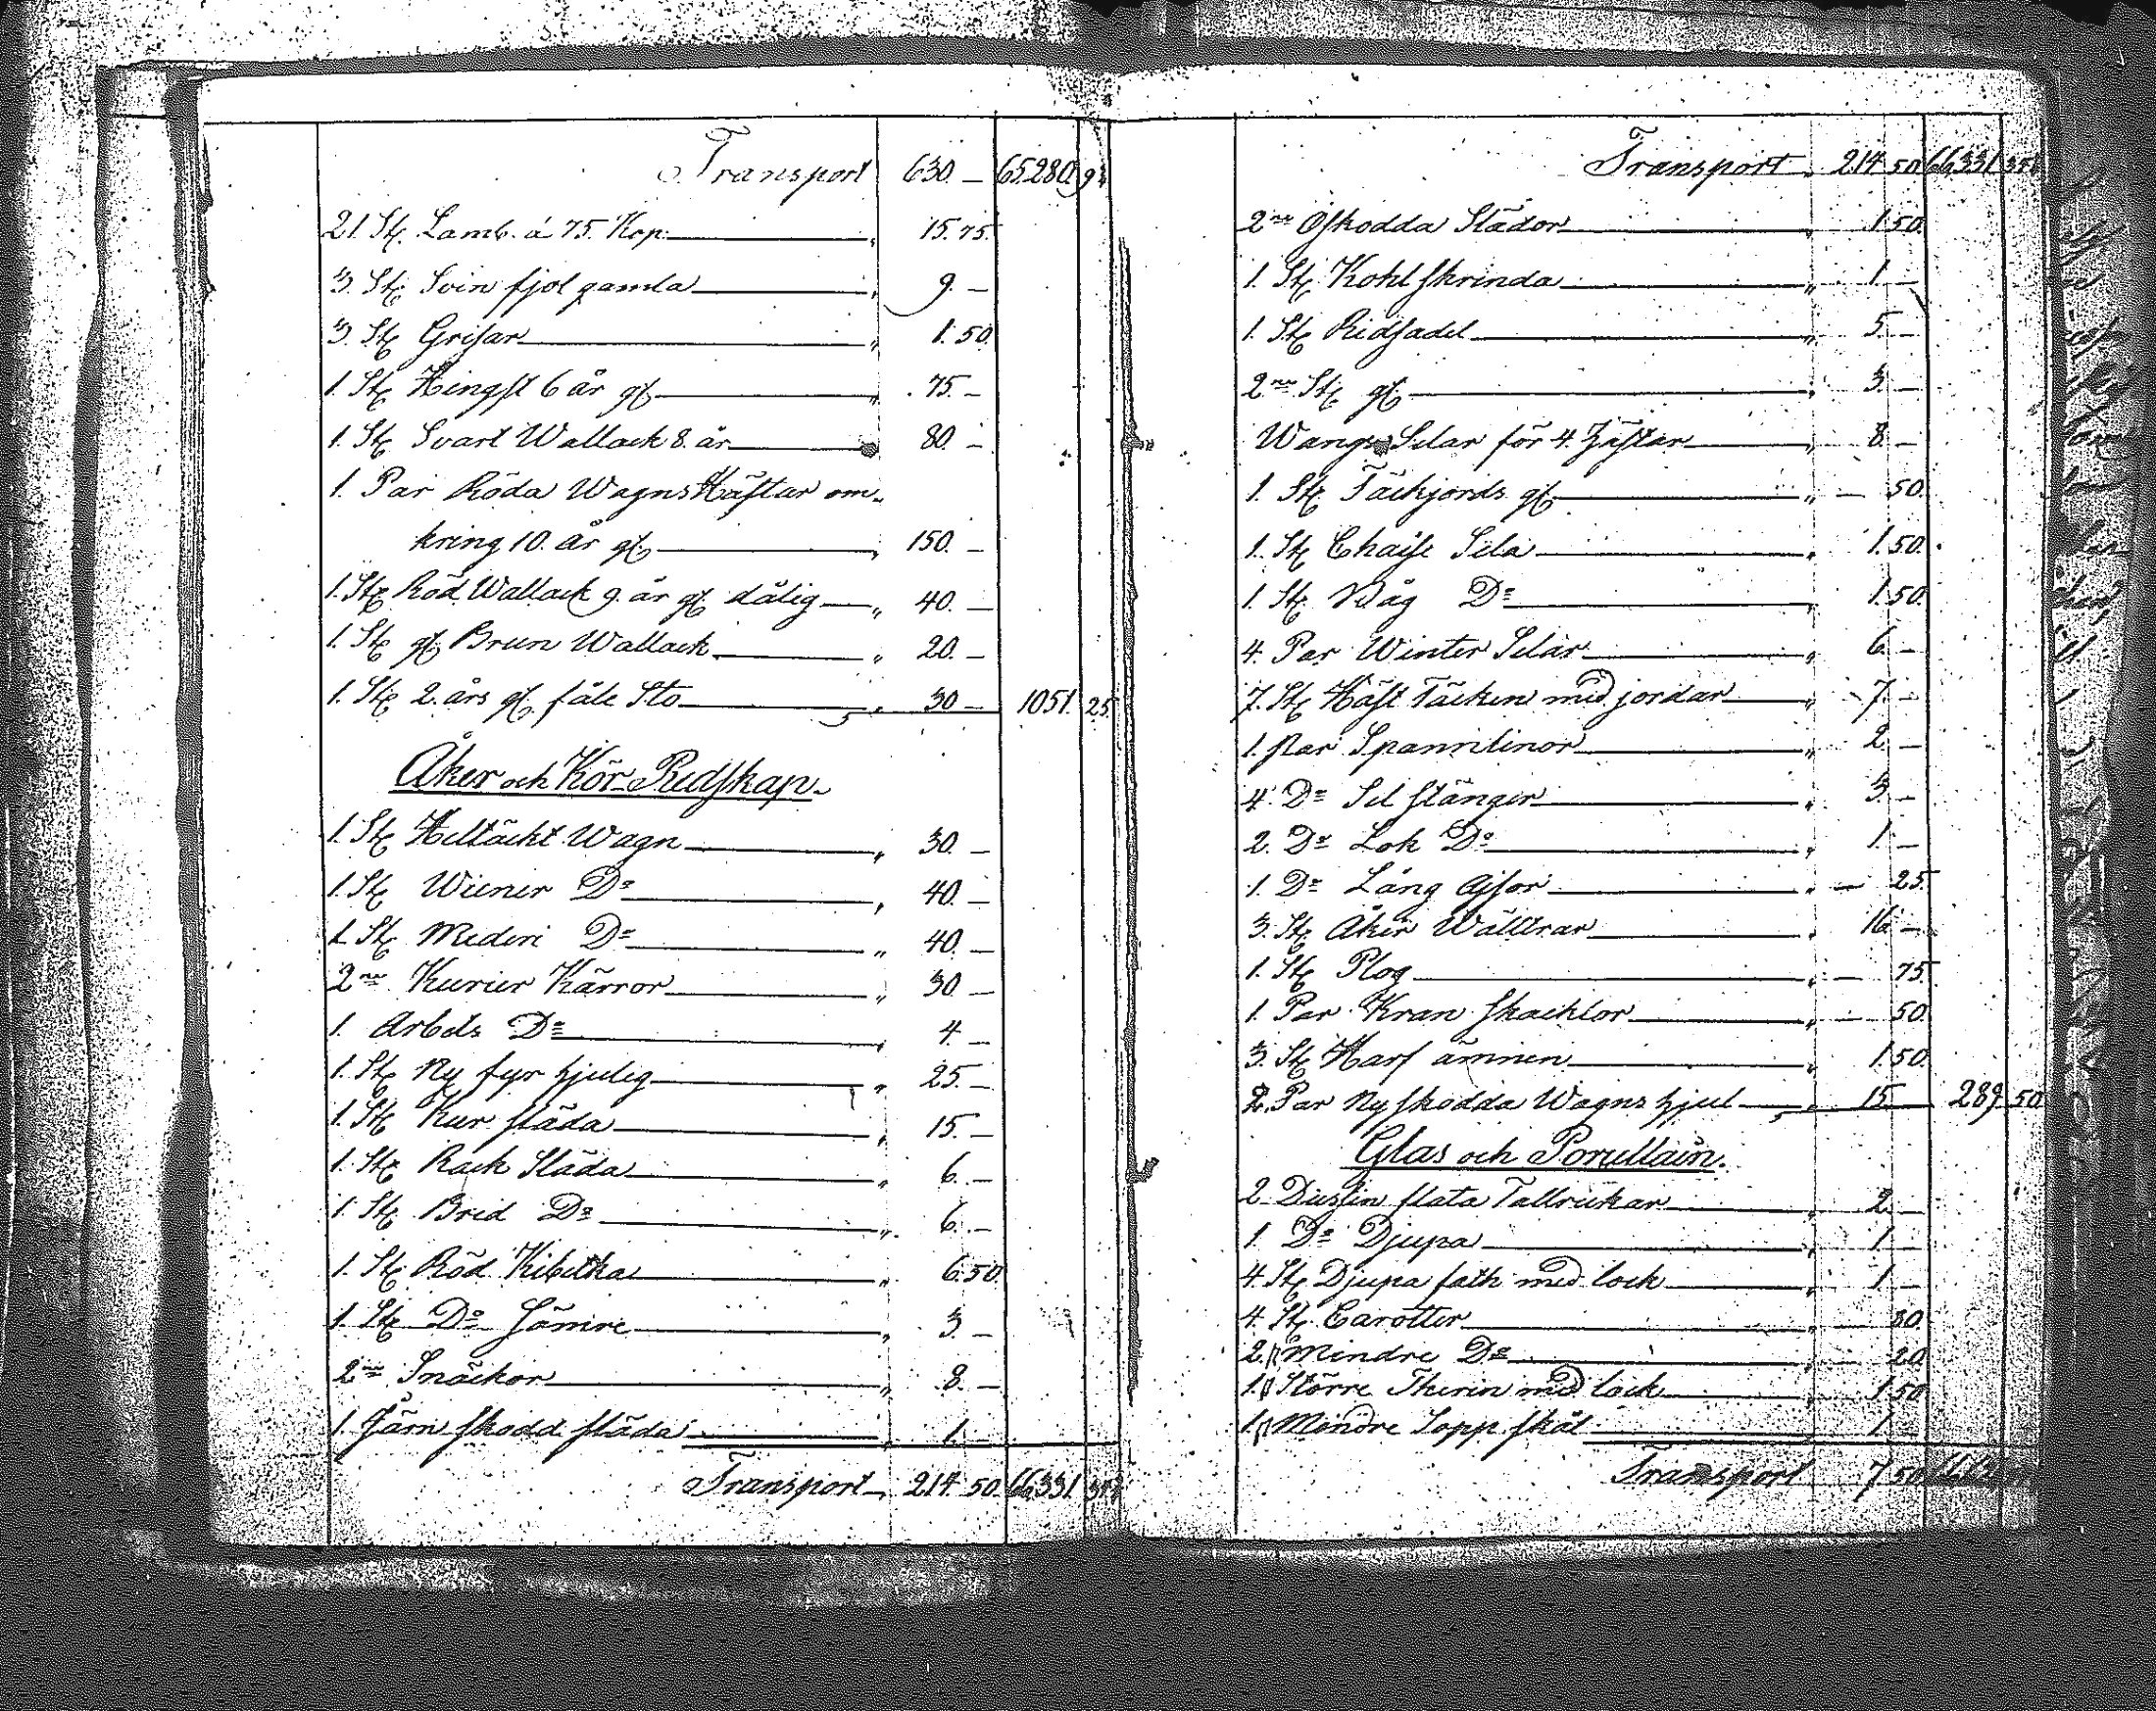 Transport 630. — 65280. 9
21. St. Lamb. á 75. Kop. " 15. 75.
3. St. Svin fjol gamla " 9. —
3. St. Grisar " 1. 50.
1. St. Hingst 6 år gl. " 75. —
1. St. Svart Wallack 8. år 80. —
1. Par Röda Wagns Hästar om-
kring 10. år gl. " 150. —
1. St. Röd Wallack 9. år gl. dålig " 40. —
1. St. gl. Brun Wallack " 20. —
1. St. 2. års gl. fåle Sto " 30 — 1051. 25.
Åker och Kör-Redskap.
1. St. Heltäckt Wagn " 30. —
1. St. Wiener Do " 40. —
1. St. Mederi Do " 40. —
2ne Kurier Kärror " 30. —
1. Arbets Do " 4. —
1. St. Ny fyr hjulig " 25. —
1. St. Kur släda " 15. —
1. St. Rack Släda " 6. —
1. St. Bred Do " 6. —
1. St. Röd Kibitka " 6. 50.
1. St. Do Sämre " 3. —
2ne Snäckor " 8. —
1. Järn skodd släda " 1. —
Transport 214. 50. 66,331.
Transport 214 50 66,331
2ne Oskodda Slädor " 1. 50.
1. St. Kohl skrinda " 1. —
1. St. Ridsadel " 5 —
2ne St. gl. " 3. —
Wangs Selar för 4. Hästar " 8. —
1. St. Täckjords gl. " — 50.
1. St. Chaise Sela " 1. 50.
1. St. Våg Do " 1. 50.
4. Par Winter Selar " 6. —
7. St. Häst Täcken med jordar " 7. —
1. Par Spannlinor " 2. —
4. Do Sel stänger " 3. —
2. Do Lok Do " 1. —
1. Do Lång Ajsor " — 25.
3. St. Åker Wälltrar " 16. —
1. St. Plog " — 75.
1. Par Kran skacklor " — 50.
3. St. Harf ämnen " 1. 50.
2. Par Nyskodda Wagns hjul " 15. 289 50.
Glas och Porcellain.
2. Dussin flata Tallrickar " 2. —
1. Do Djupa " 1 —
4. St. Djupa fath med lock " 1 —
4. St. Carotter 80.
2. " Mindre Do " 20.
1. " Större Therin med lock " 1 50
1. " Mindre Sopp skål 1 —
Transport 7 50